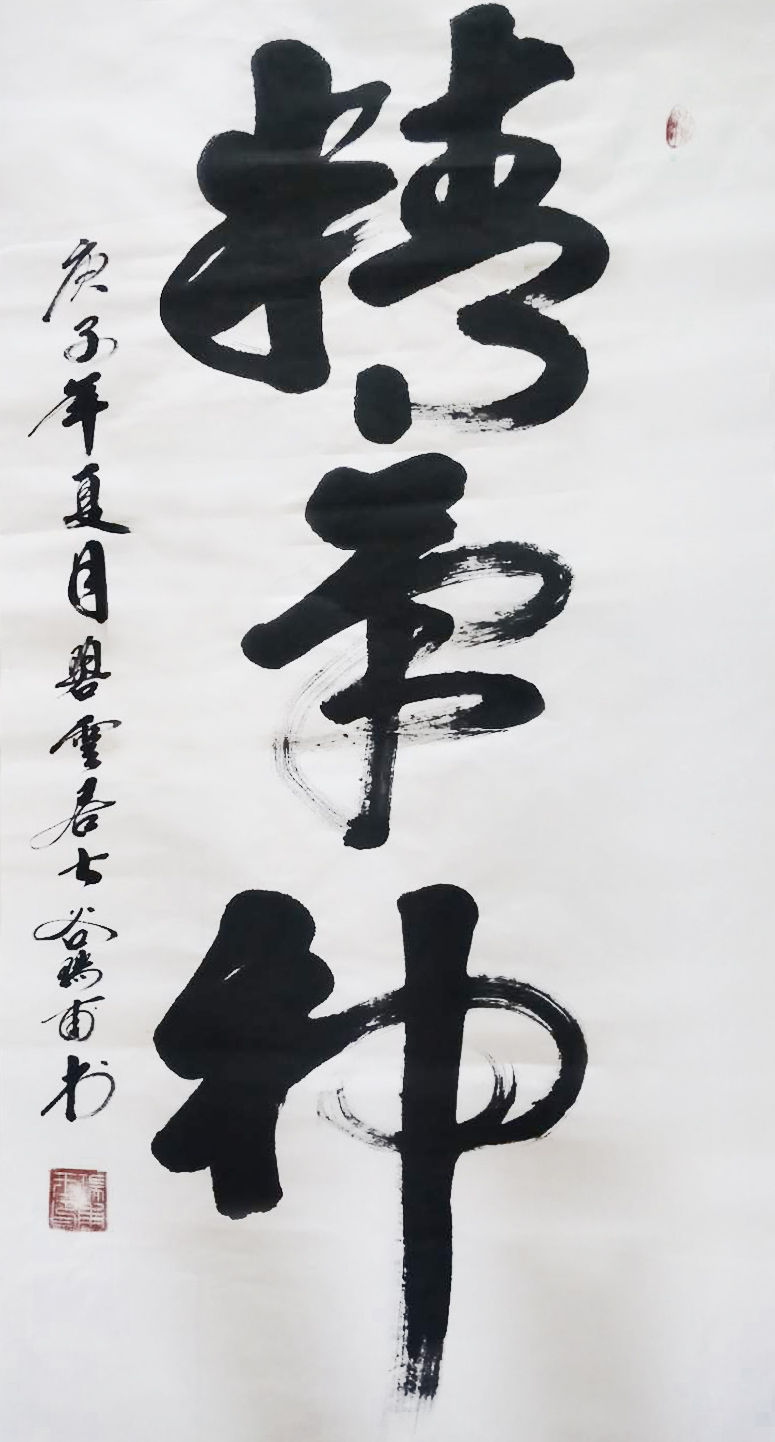 精氣神
庚子年夏月碧雲居士谷瑞甫书